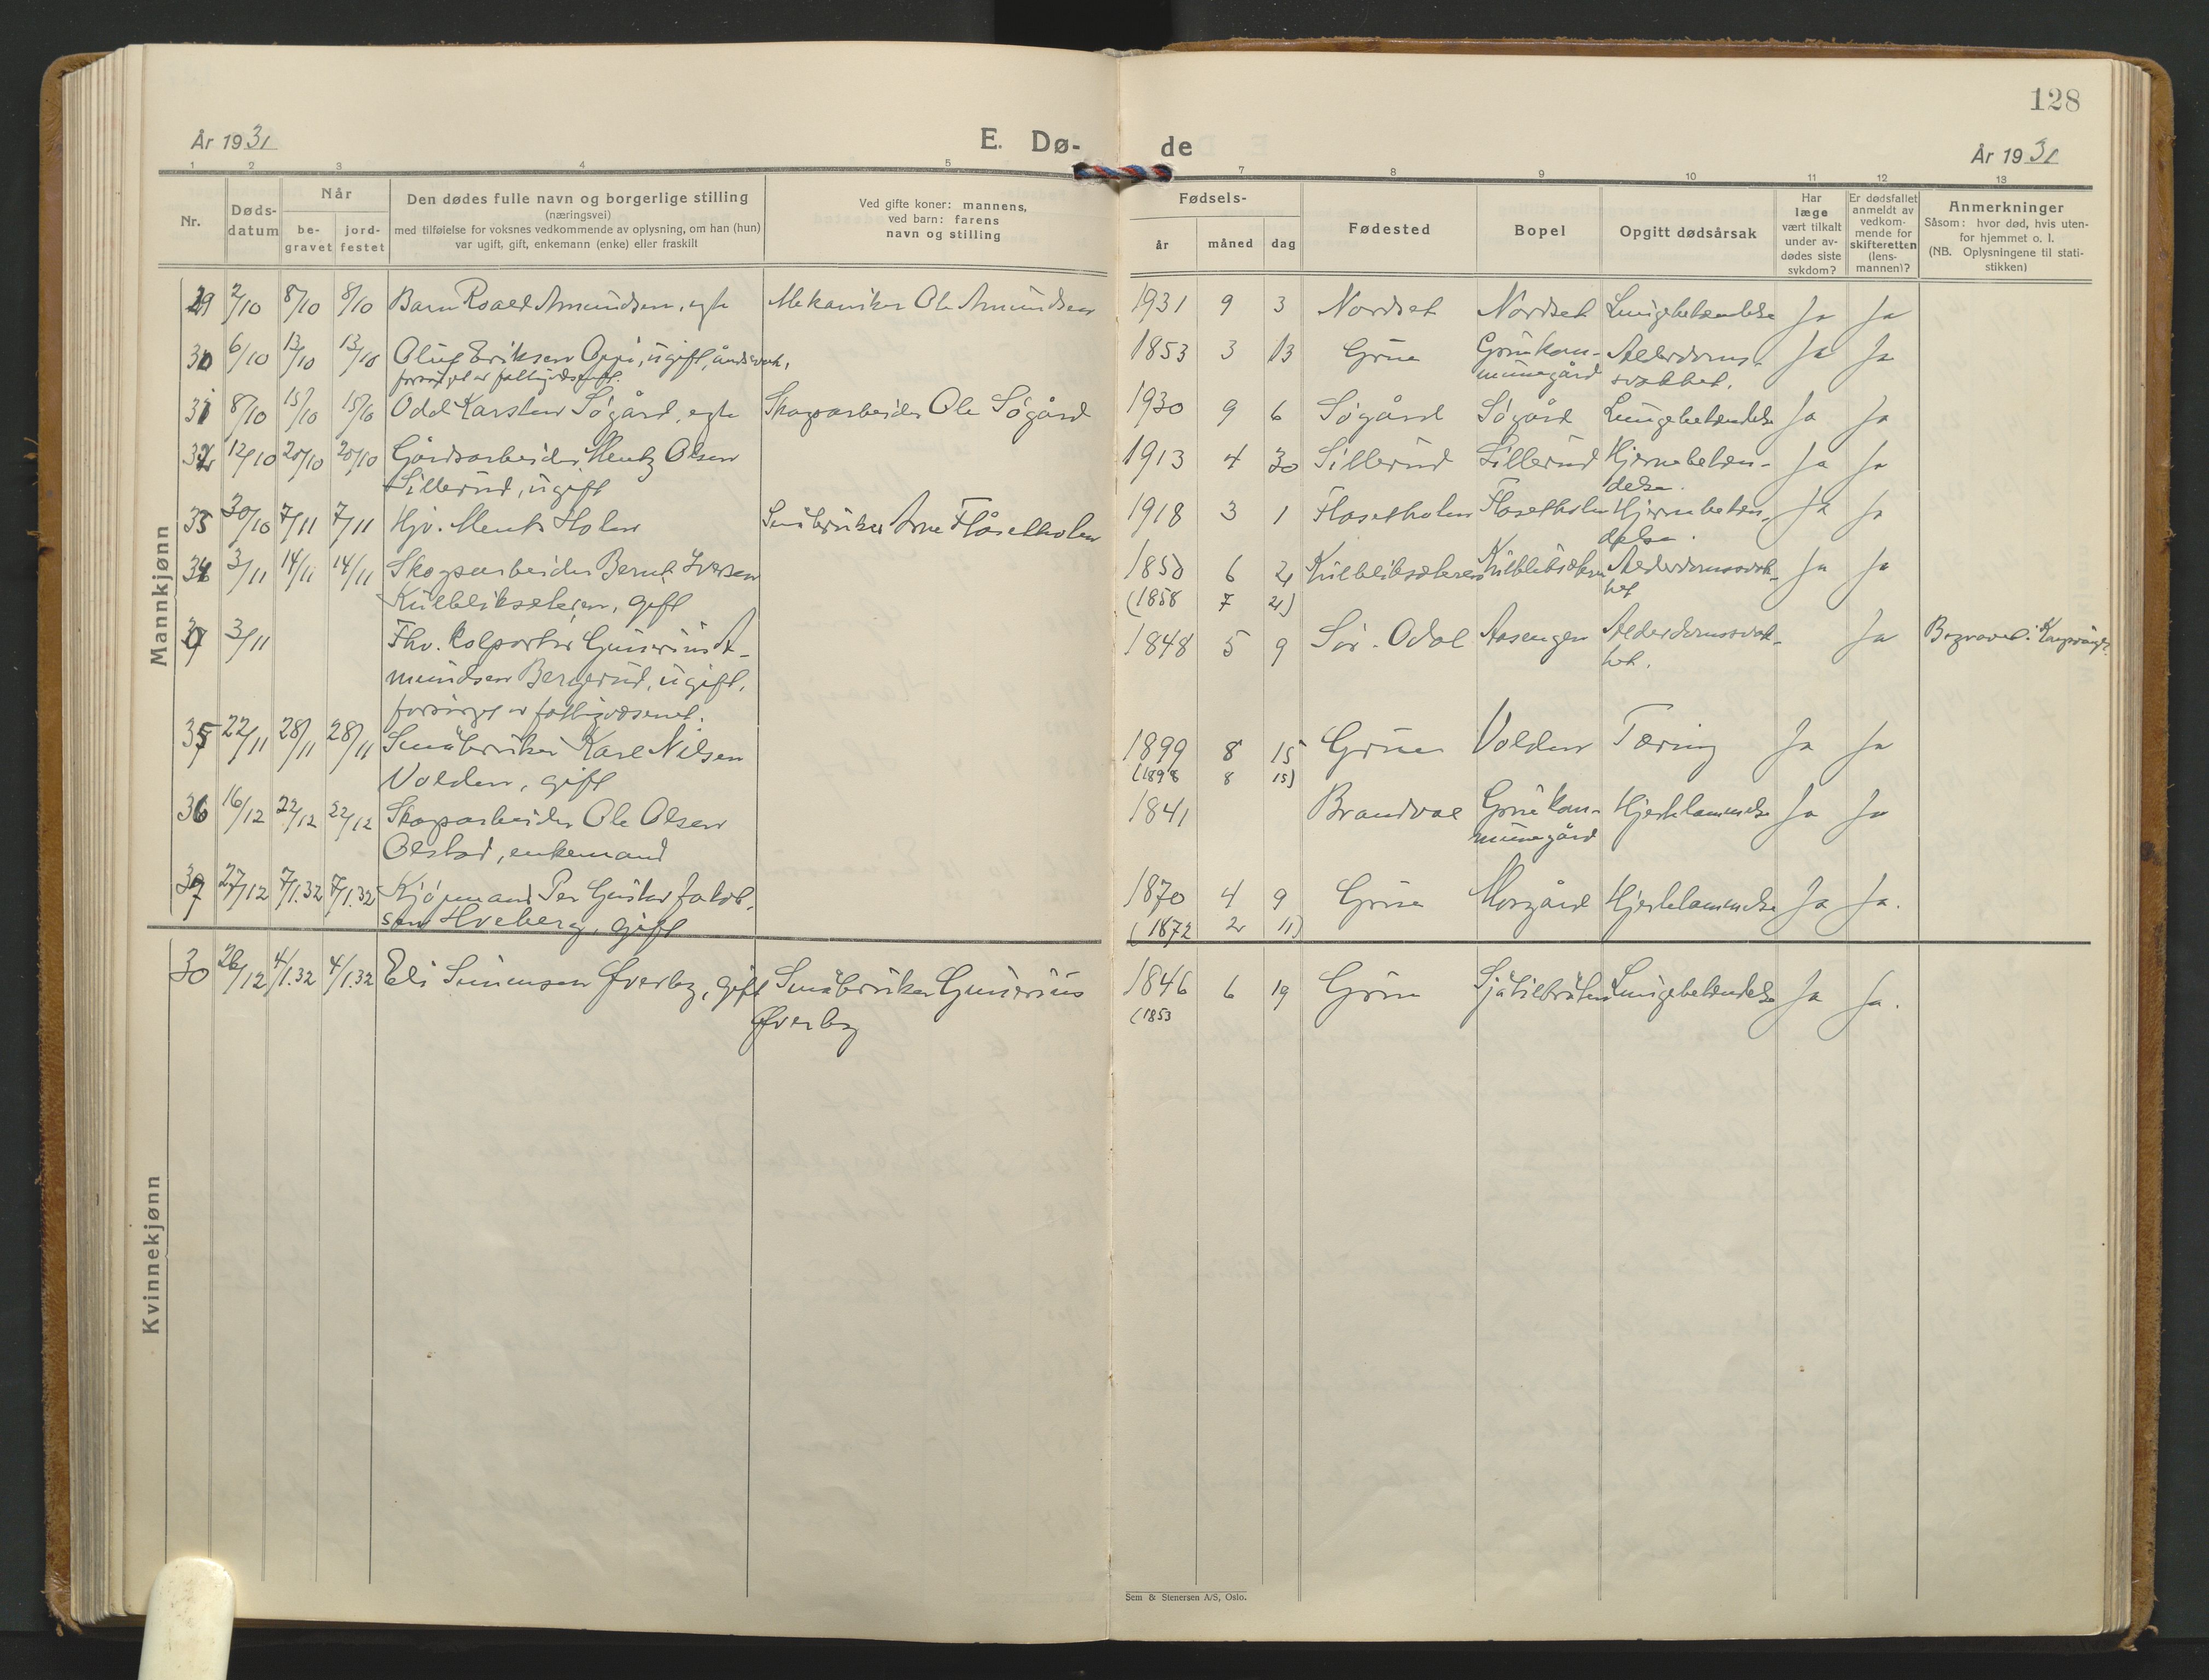 128
År 1931
E. Dø-
de
År 1931
1 2 3 4 5 7 8 9 10 11 12 13
Nr.
Døds-
datum
Når
be-
gravet
jord-
festet
Den dødes fulle navn og borgerlige stilling
(næringsvei)
med tilføielse for voksnes vedkommende av oplysning, om han (hun)
var ugift, gift, enkemann (enke) eller fraskilt
Ved gifte koner: mannens,
ved barn: farens
navn og stilling
Fødsels-
år måned dag
Fødested
Bopel
Opgitt dødsårsak
Har
læge
vært tilkalt
under av-
dødes siste
sykdom?
Er dødsfallet
anmeldt av
vedkom-
mende for
skifteretten
(lens-
mannen)?
Anmerkninger
Såsom: hvor død, hvis uten-
for hjemmet o. l.
(NB. Oplysningene til stati-
stikken)
Mannkjønn
29 2/10 8/10 8/10 Barn Roald Amundsen, egte Mekaniker Ole Amundsen 1931 9 3 Nordset Nordset Lungebetændelse Ja Ja
30 6/10 13/10 13/10 Oluf Eriksen Oppi, ugift, åndssvak, 1853 3 13 Grue Grue kom- Alderdoms- Ja Ja
munegård svakhet.
31 8/10 15/10 15/10 Odd Karsten Søgård, egte Skogsarbeider Ole Søgård 1930 9 6 Søgård Søgård Lungebetændelse Ja Ja
32 12/10 20/10 20/10 Gårdsarbeider Mentz Olsen 1913 4 30 Sillerud Sillerud Hjernebetæn- Ja Ja
Sillerud, ugift delse.
33 30/10 7/11 7/11 Hjv. Ments Holen Småbruker Arne Flåsetholen 1918 3 1 Flasetholen Flasetholen Hjernebetæn- Ja Ja
delse.
34 3/11 14/11 14/11 Skogsarbeider Bernt Iversen 1850 6 21 Kulbliksæteren Kulbliksæteren Alderdomssvak- Ja Ja
Kulblikseteren, gift (1858 7 21) het
3/11 Fhv. kolportør Gunerius A- 1848 5 9 Sør-Odal Aasengen Alderdomssvak- Ja Begravet i Kongsvinger.
mundsen Bergerud, ugift, het.
forsørget av fattigvæsenet.
35 22/11 28/11 28/11 Småbruker Karl Nilsen 1899 8 15 Grue Volden Tæring Ja Ja
Volden, gift (1898 8 15)
36 16/12 22/12 22/12 Skogsarbeider Ole Olsen 1841 Brandval Grue kom- Hjertelammelse Ja Ja
Olstad, enkemand munegård
37 27/12 7/1.32 7/1.32 Kjøpmand Per Gustav Jakob- 1870 4 9 Grue Morgård Hjertelammelse Ja Ja.
sen Hveberg, gift (1872 2 11)
Kvinnekjønn
30 26/12 4/1.32 4/1.32 Eli Simensen Øverby, gift Småbruker Gunerius 1846 6 19 Grue Lungebetændelse Ja Ja.
Øverby (1853
Sem & Stenersen A/S, Oslo.